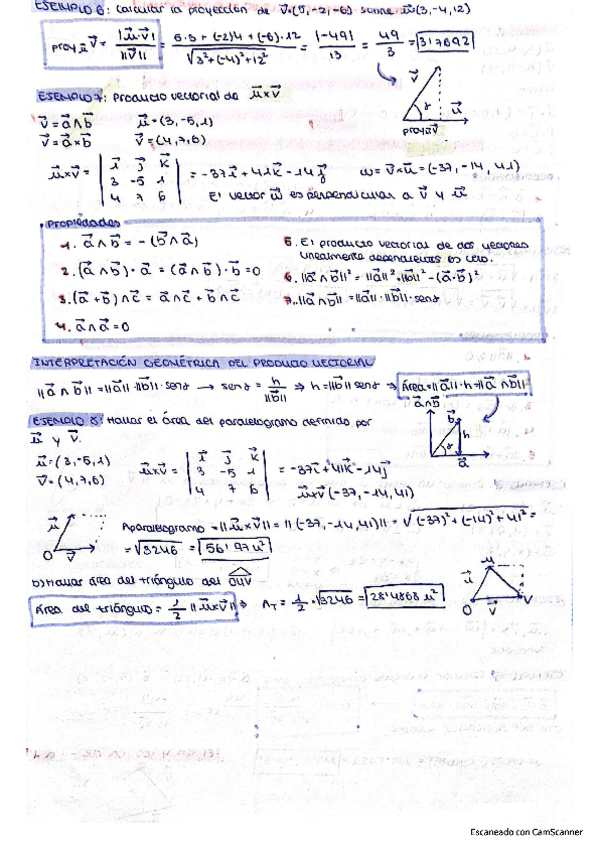 EJEMPLO 6: calcular la proyección de v=(5,-2,-6) sobre u=(3,-4,12)
proy_u v = |u·v| / ||v|| = 5·3 + (-2)4 + (-6)·12 / √3²+(-4)²+12² = |-49| / 13 = 49 / 3 = 3'7692
v
u
proy u v
EJEMPLO 7: Producto vectorial de u×v
v = a∧b u=(3,-5,1)
v = a×b v=(4,7,6)
u×v = | i j k | = -37i + 41k - 14j w = v×u = (-37, -14, 41)
3 -5 1
4 7 6 El vector w es perpendicular a v y u
Propiedades
1. a∧b = -(b∧a)
2. (a∧b)·a = (a∧b)·b = 0
3. (a+b)∧c = a∧c + b∧c
4. a∧a = 0
5. El producto vectorial de dos vectores
linealmente dependientes es cero.
6. ||a∧b||² = ||a||²·||b||² - (a·b)²
7. ||a∧b|| = ||a||·||b||·sen γ
INTERPRETACIÓN GEOMÉTRICA DEL PRODUCTO VECTORIAL
||a∧b|| = ||a||·||b||·sen γ → sen γ = h / ||b|| ⇒ h = ||b|| sen γ ⇒ Área = ||a||·h = ||a∧b||
a∧b
b
h
a
EJEMPLO 8: Hallar el área del paralelogramo definido por
u y v.
u=(3,-5,1)
v=(4,7,6)
u×v = | i j k | = -37i + 41k - 14j
3 -5 1
4 7 6 u×v (-37, -14, 41)
u
O v
A paralelogramo = ||u×v|| = ||(-37, -14, 41)|| = √(-37)²+(-14)²+41² =
= √3246 = 56'97 u²
b) Hallar área del triángulo del OUV
Área del triángulo = 1/2 ||u×v|| ⇒ A_T = 1/2 · √3246 = 28'4868 u²
u
u
O v V
Escaneado con CamScanner